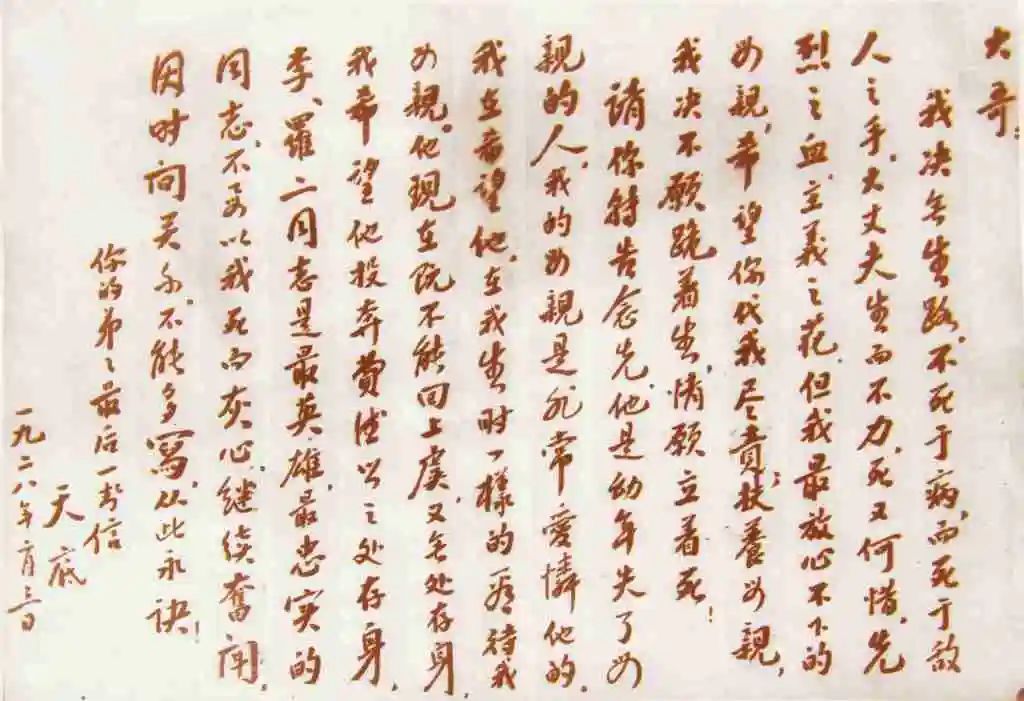 大哥:
我决无生路,不死于病,而死于敌
人之手,大丈夫生而不力,死又何惜,先
烈之血,主義之花,但我最放心不下的
母親,希望你代我尽責,扶養母親,
我决不願跪着生,情願立着死!
請你特告念先,他是幼年失了母
親的人,我的母親是非常愛憐他的,
我在希望他,在我生时一樣的看待我
母親。他現在既不能回上虞,又无处存身,
我希望他投奔費德以之处存身,
李、羅二同志是最英雄最忠实的
同志,不要以我死而灰心,继续奮闹,
因时间关系,不能多寫,从此永訣!
你的弟之最后一封信
天底
一九二八年二月三日